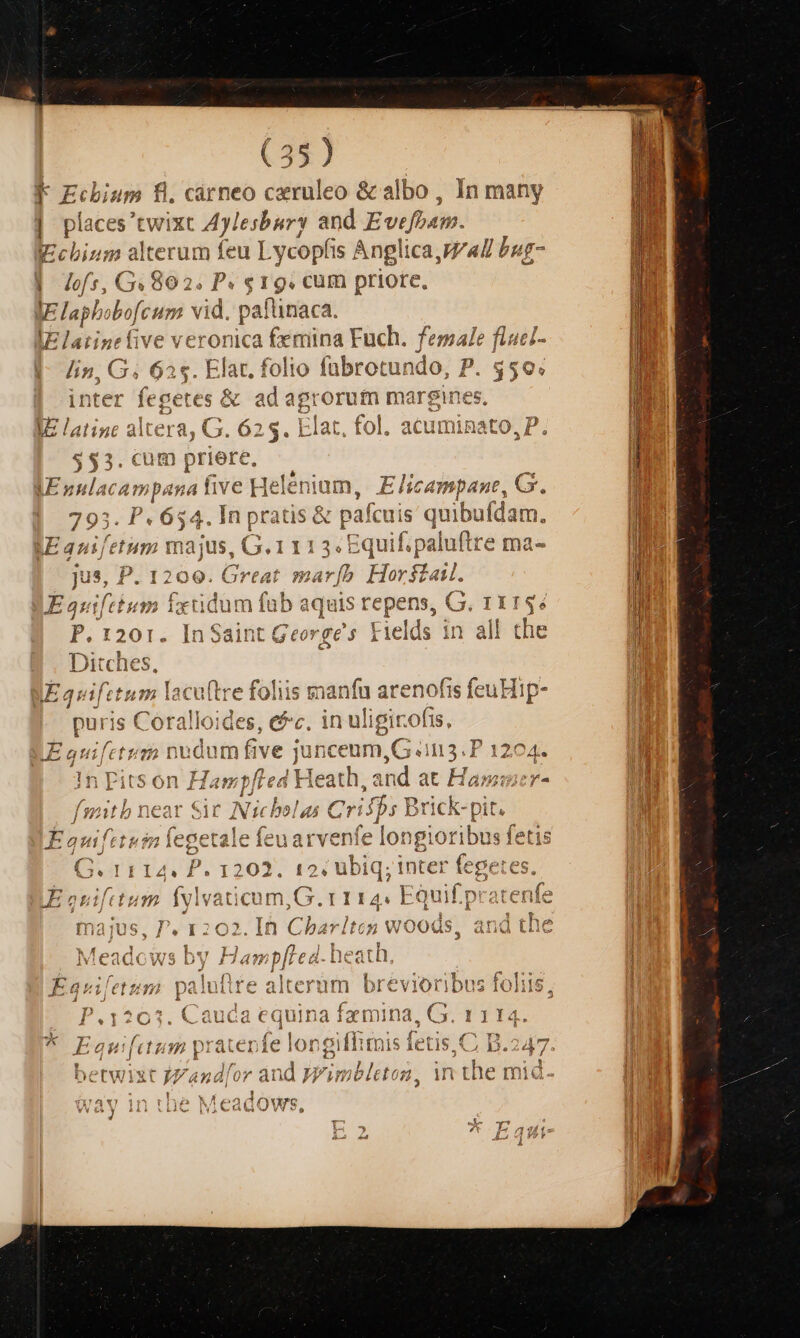 (35)
* Echium fl. carneo cæruleo & albo, In many
places 'twixt Aylesbury and Evesham.
Echium alterum ſeu Lycopſis Anglica, Wall bug-
loſs, G. 802. P. 519. cum priore.
Elaphoboſcum vid. paſtinaca.
Elatine ſive veronica fæmina Fuch. female fluel-
lin, G. 625. Elat. folio ſubrotundo, P. 550.
inter ſegetes & ad agrorum margines.
Elatine altera, G. 625. Elat. fol. acuminato, P.
553. cum priere.
Enulacampana ſive Helenium, Elicampane, G.
793. P. 654. In pratis & paſcuis quibuſdam.
Equiſetum majus, G. 1113. Equiſ. paluſtre ma-
jus, P. 1200. Great marſh Horſtail.
Equiſetum fætidum ſub aquis repens, G. 1115.
P. 1201. In Saint George's Fields in all the
Ditches.
Equiſetum lacuſtre foliis manſu arenoſis ſeu Hip-
puris Coralloides, &c. in uliginoſis.
Equiſetum nudum ſive junceum, G. 1113. P 1204.
In Pits on Hampſted Heath, and at Hammer-
ſmith near Sir Nicholas Criſps Brick-pit.
Equiſetum ſegetale ſeu arvenſe longioribus ſetis
G. 1114. P. 1202. 12. ubiq; inter ſegetes.
Equiſetum ſylvaticum, G. 1114. Equiſ. pratenſe
majus, P. 1202. In Charlton woods, and the
Meadows by Hampſted-heath.
Equiſetum paluſtre alterum brevioribus foliis,
P. 1203. Cauda equina fæmina, G. 1114.
* Equiſetum pratenſe longiſſimis ſetis, C. B. 247.
betwixt Wandſor and Wimbleton, in the mid-
way in the Meadows.
E 2 * Equi-